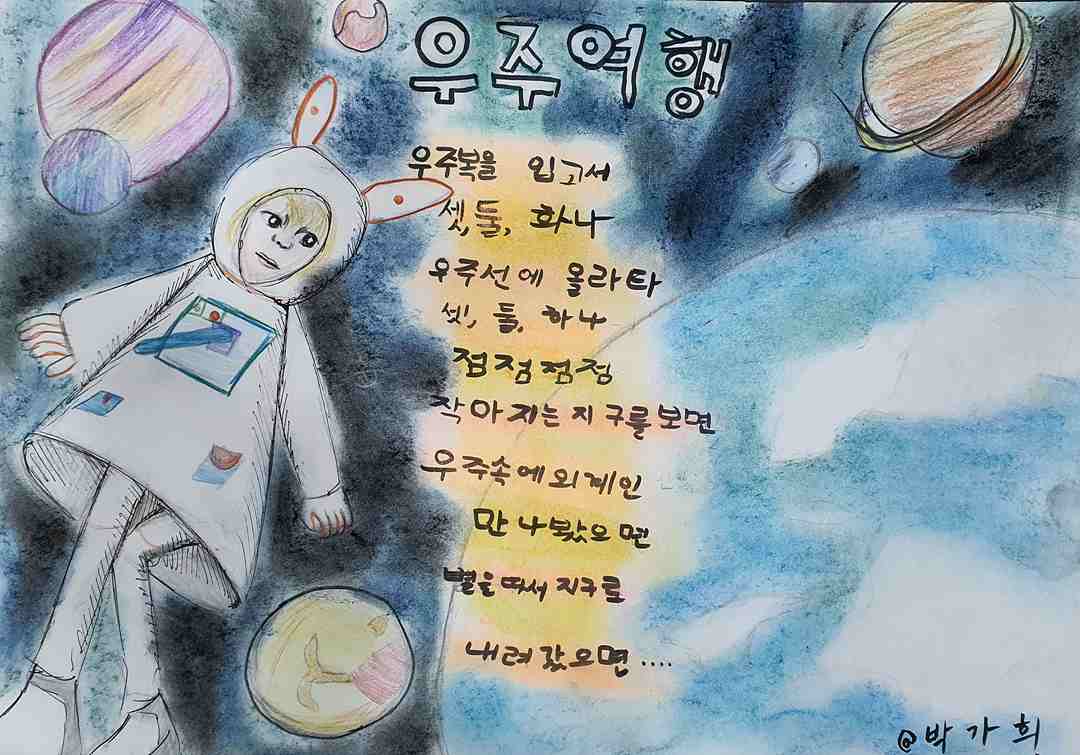 우주여행
우주복을 입고서
셋, 둘, 하나
우주선에 올라타
셋, 둘, 하나
점점점점
작아지는 지구를 보면
우주속에 외계인
만나봤으면
별을 따서 지구로
내려갔으면 ....
@박가희